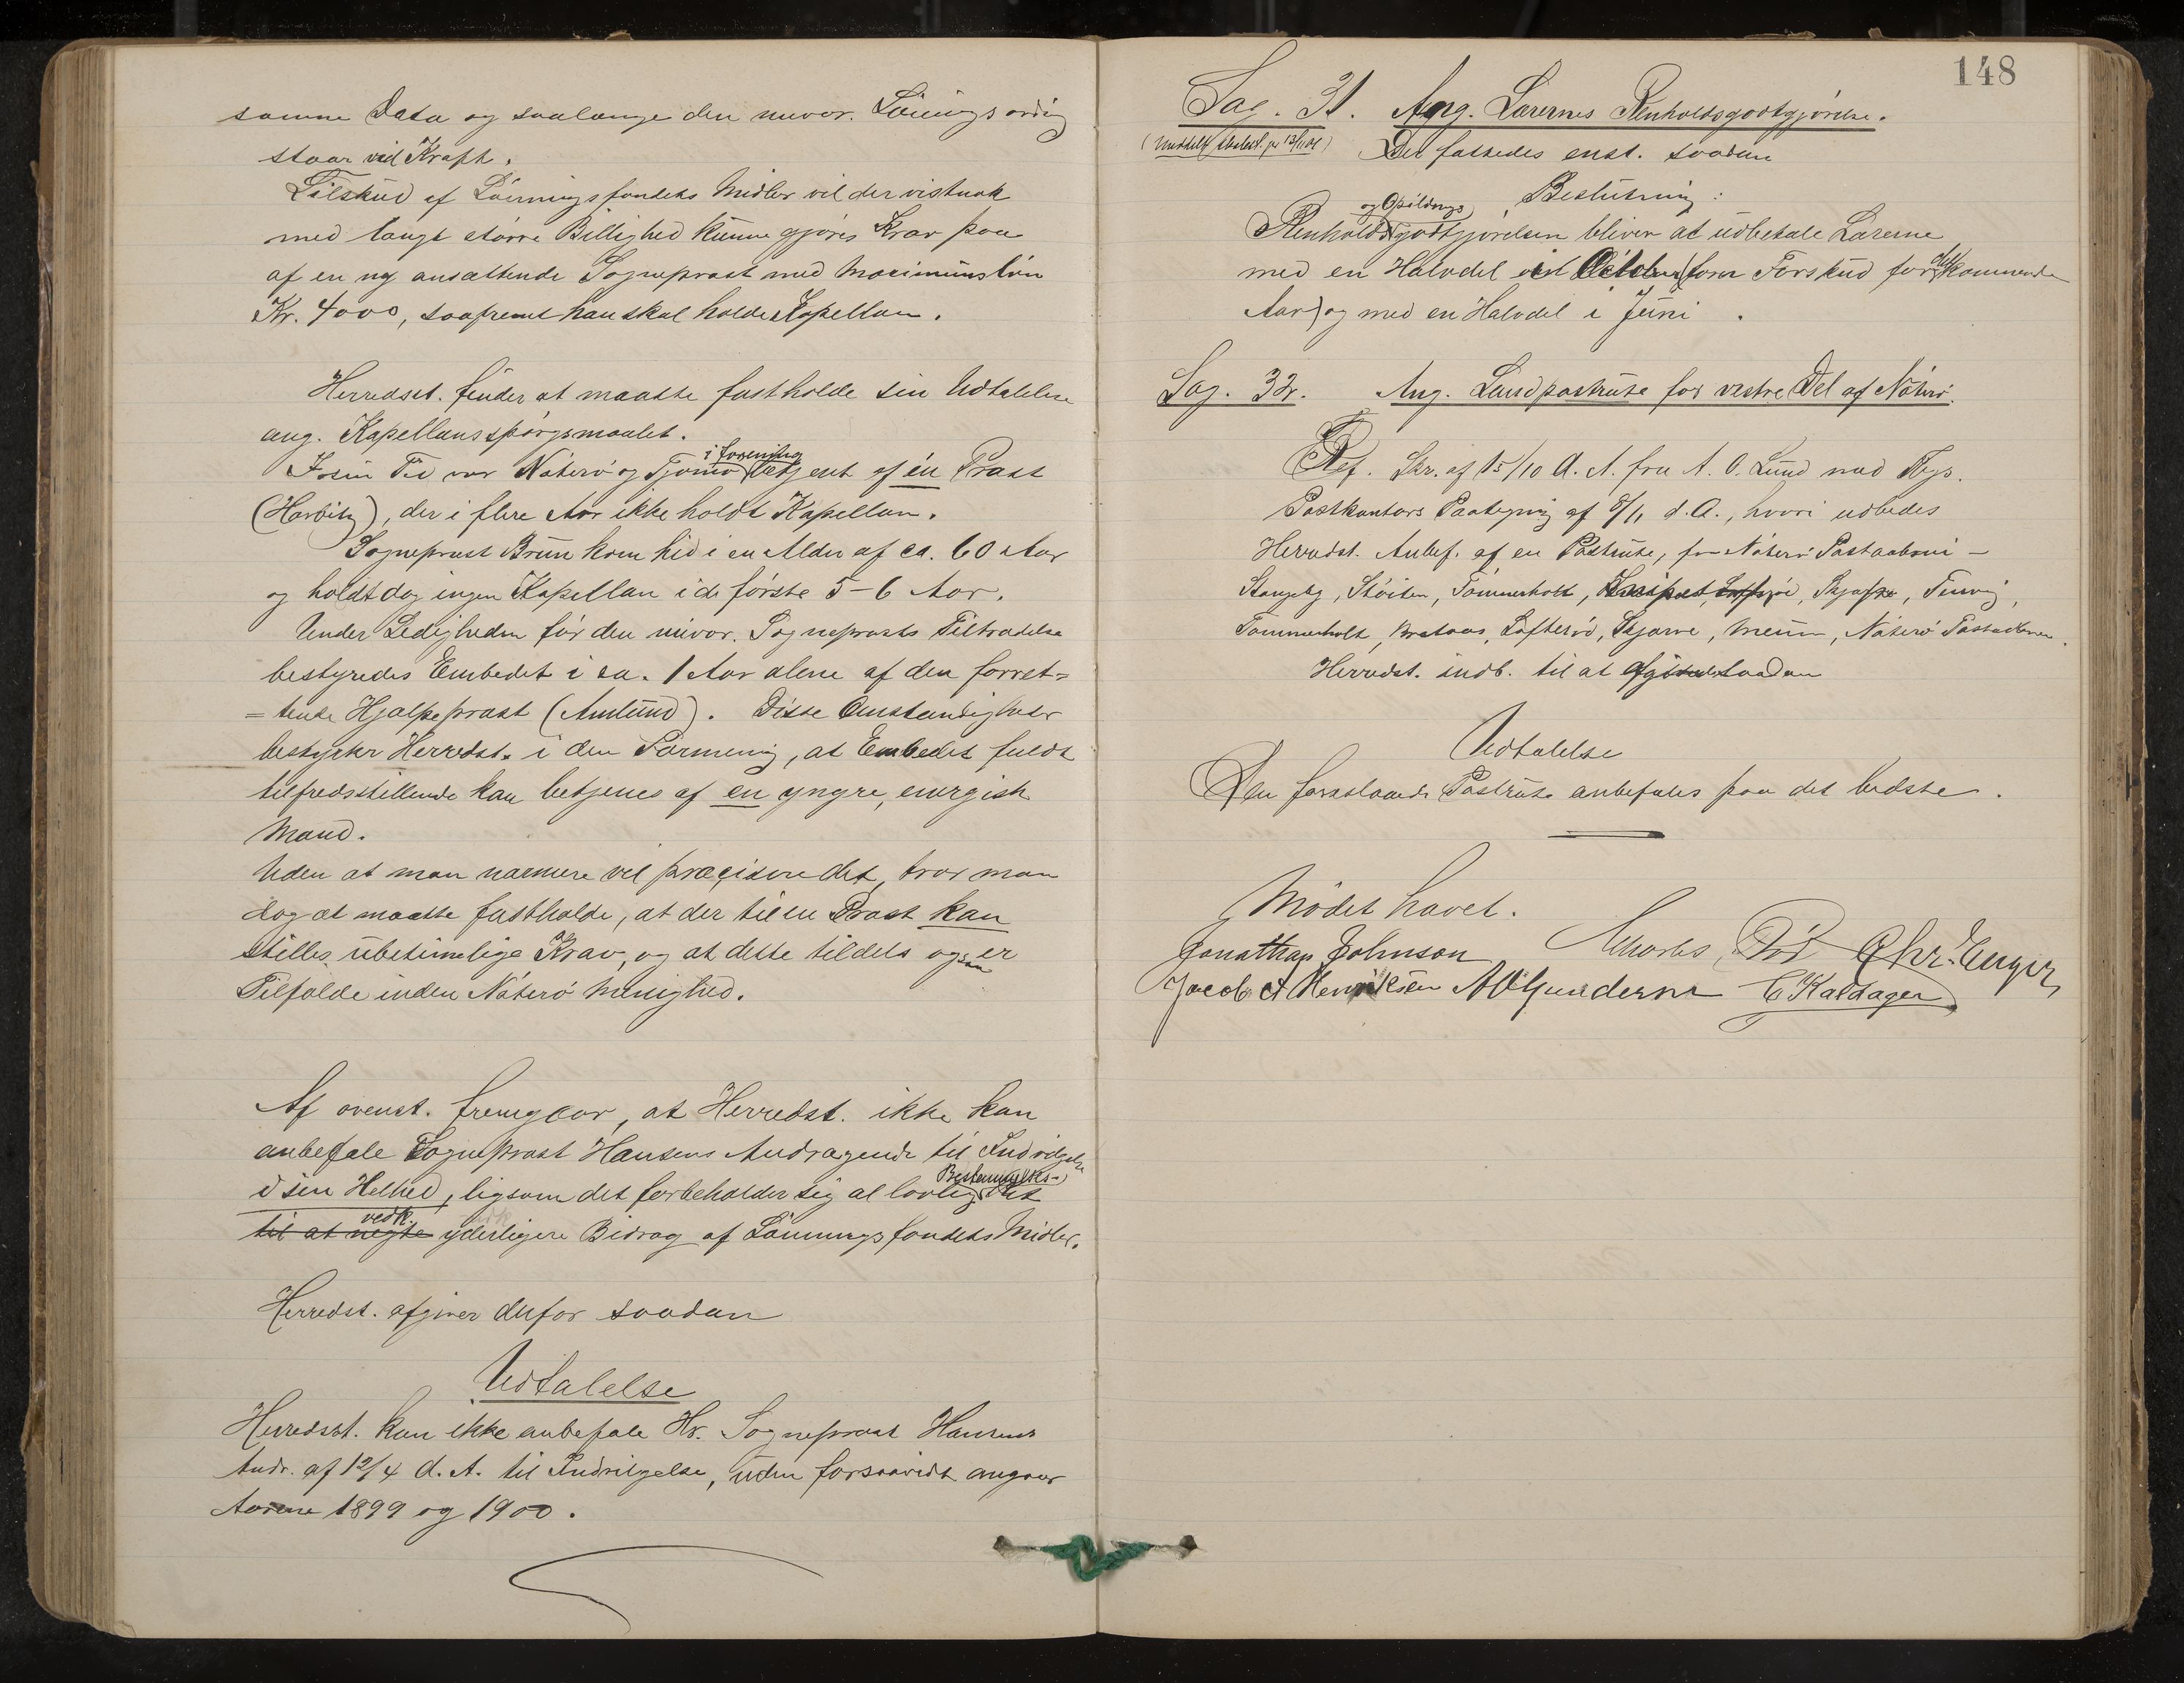 samme Data og saalænge den nuvær. Lönings ordng
staar ved Kraft.
Tilskud af Lönningsfondets Midler vil der vistnok
med langt större Billighed kunne gjöres Krav paa
af en ny ansættende Sogneprest med Maximumslön
Kr. 4000, saafremt han skal holde Kapellan.
Herredsst. finder at maatte fastholde sin Udtalelse
ang. Kapellansspörgsmaalet.
I sin Tid var Nöterö og Tjömö i Forening betjent af én Præst
(Harbitz), der i flere Aar ikke holdt Kapellan.
Sogneprest Brun kom hid i en Alder af ca. 60 Aar
og holdt dog ingen Kapellan i de förste 5-6 Aar.
Under Ledigheden för den nuvær. Sogneprests Tiltrædelse
bestyredes Embedet i ca. 1 Aar alene af den forret=
=tende Hjælpeprest (Amlund). Disse Omstændigheder
bestyrker Herredst. i den Formening, at Embedet fuldt
tilfredsstillende kan betjenes af en yngre, energisk
Mand.
Uden at man nærmere vil præcisere det, tror man
dog at maatte fastholde, at der til en Præst kan
stilles ubetimelige Krav, og at dette tildels ogsaa er
Tilfælde inden Nöterö Menighed.
Af ovenst. fremgaar, at Herredst. ikke kan
anbefale Sogneprest Hansens Andragende til Indvilgelse
i sin Helhed, ligsom det forbeholder sig al lovlig Bestemmelses- Ret
til at negte vedk. yderligere Bidrag af Lönningsfondets Midler.
Herredst. afgiver derfor saadan
Udtalelse
Herredsst. kan ikke anbefale Hr. Sogneprest Hansens
Andr. af 12/4 d. A. til Indvilgelse, uden forsaavidt angaar
Aarene 1899 og 1900.
148
Sag. 31. Ang. Lærernes Renholdsgodtgjörelse.
(Meddelt Skolest. pr 13/11 01) Det fattedes enst. saadan
Beslutning:
Renholds og Opildnings godtgjörelsen bliver at udbetale Lærerne
med en Halvdel ved October (som Forskud for det kommende
Aar) og med en Halvdel i Juni.
Sag. 32. Ang. Landpostrute for vestre Del af Nöterö.
Ref. Skr. af 15/10 d. A. fra A. O. Lund med Tbgs.
Postkontors Paategning af 8/11 d. A., hvori udbedes
Herredst. Anbef. af en Postrute, fra Nöterö Postaabneri -
Stangeby, Stöiten, Tömmerholt, Skjærve, Tenvig,
Tömmerholt, Brataas, Löfteröd, Skjærve, Meum, Nöterö Postaabneri.
Herredst. indb. til at afgive saadan
Udtalelse
Den foreslaaede Postrute anbefales paa det bedste.
Mödet hævet.
Jonathan Johnson Chr. Enger
Jacob A Henriksen A O Gundersen C Kaldager